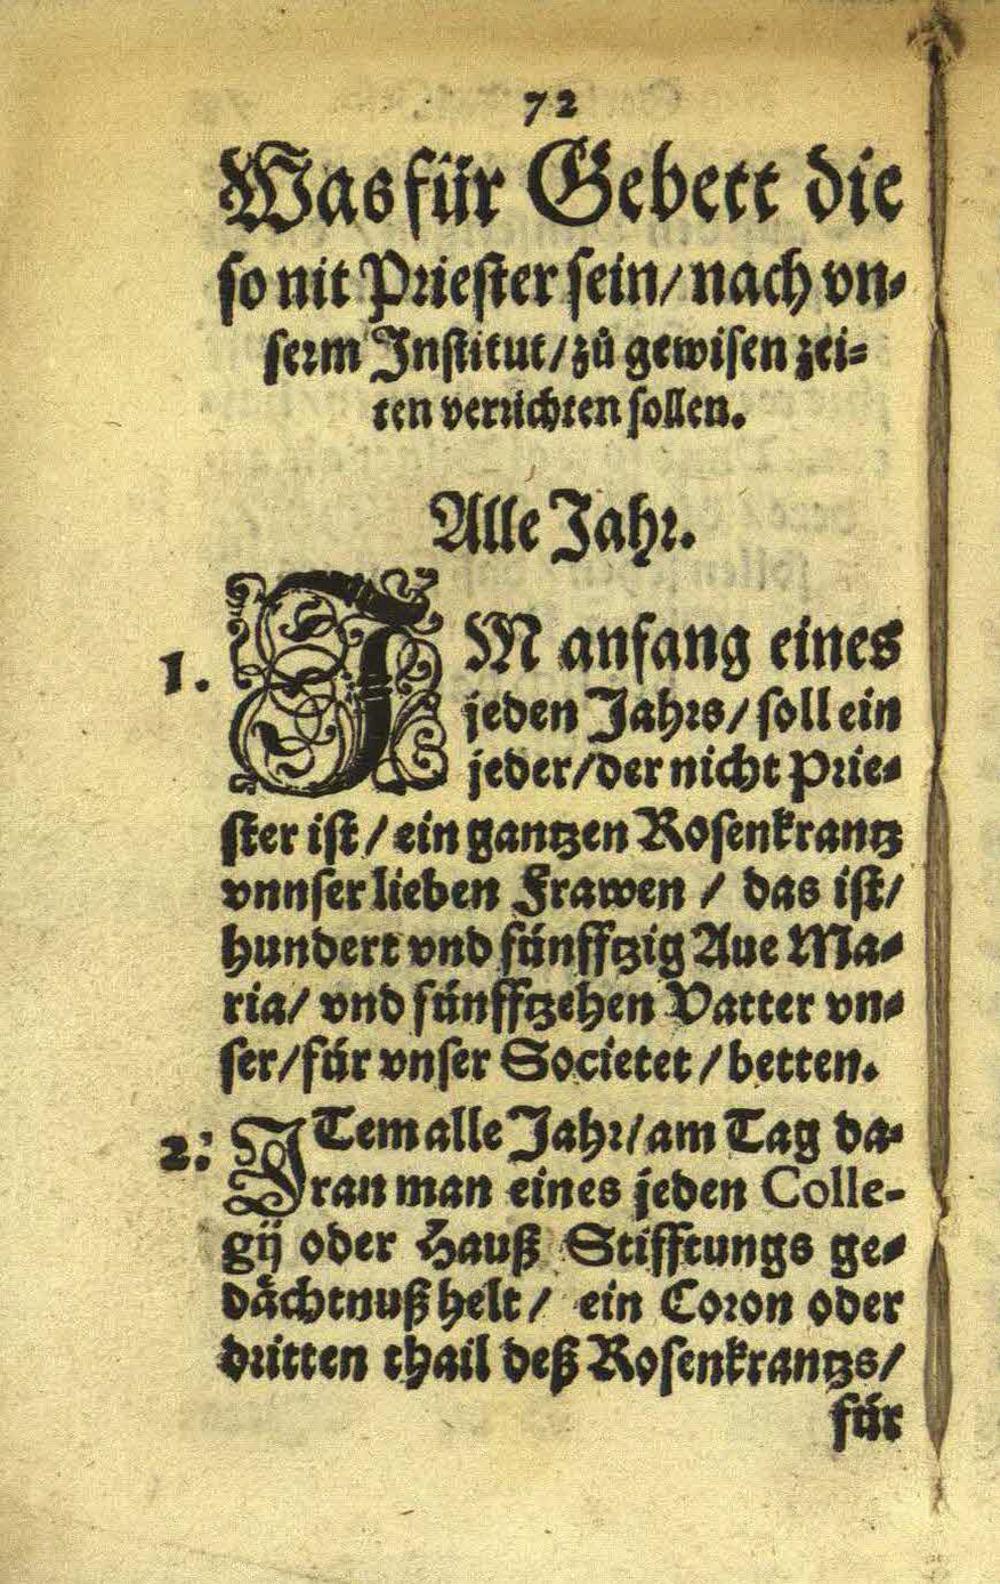 72
Was für Gebett die
so nit Priester sein/ nach vn-
serm Institut/ zů gewisen zei-
ten verrichten sollen.
Alle Jahr.
1. IM anfang eines
jeden Jahrs/ soll ein
jeder/ der nicht Prie-
ster ist/ ein gantzen Rosenkrantz
vnnser lieben Frawen/ das ist/
hundert vnd fünfftzig Aue Ma-
ria/ vnd fünfftzehen Vatter vn-
ser/ für vnser Societet/ betten.
2: ITem alle Jahr/ am Tag da-
ran man eines jeden Colle-
gij oder Hauß Stifftungs ge-
dächtnuß helt/ ein Coron oder
dritten thail deß Rosenkrantzs/
für